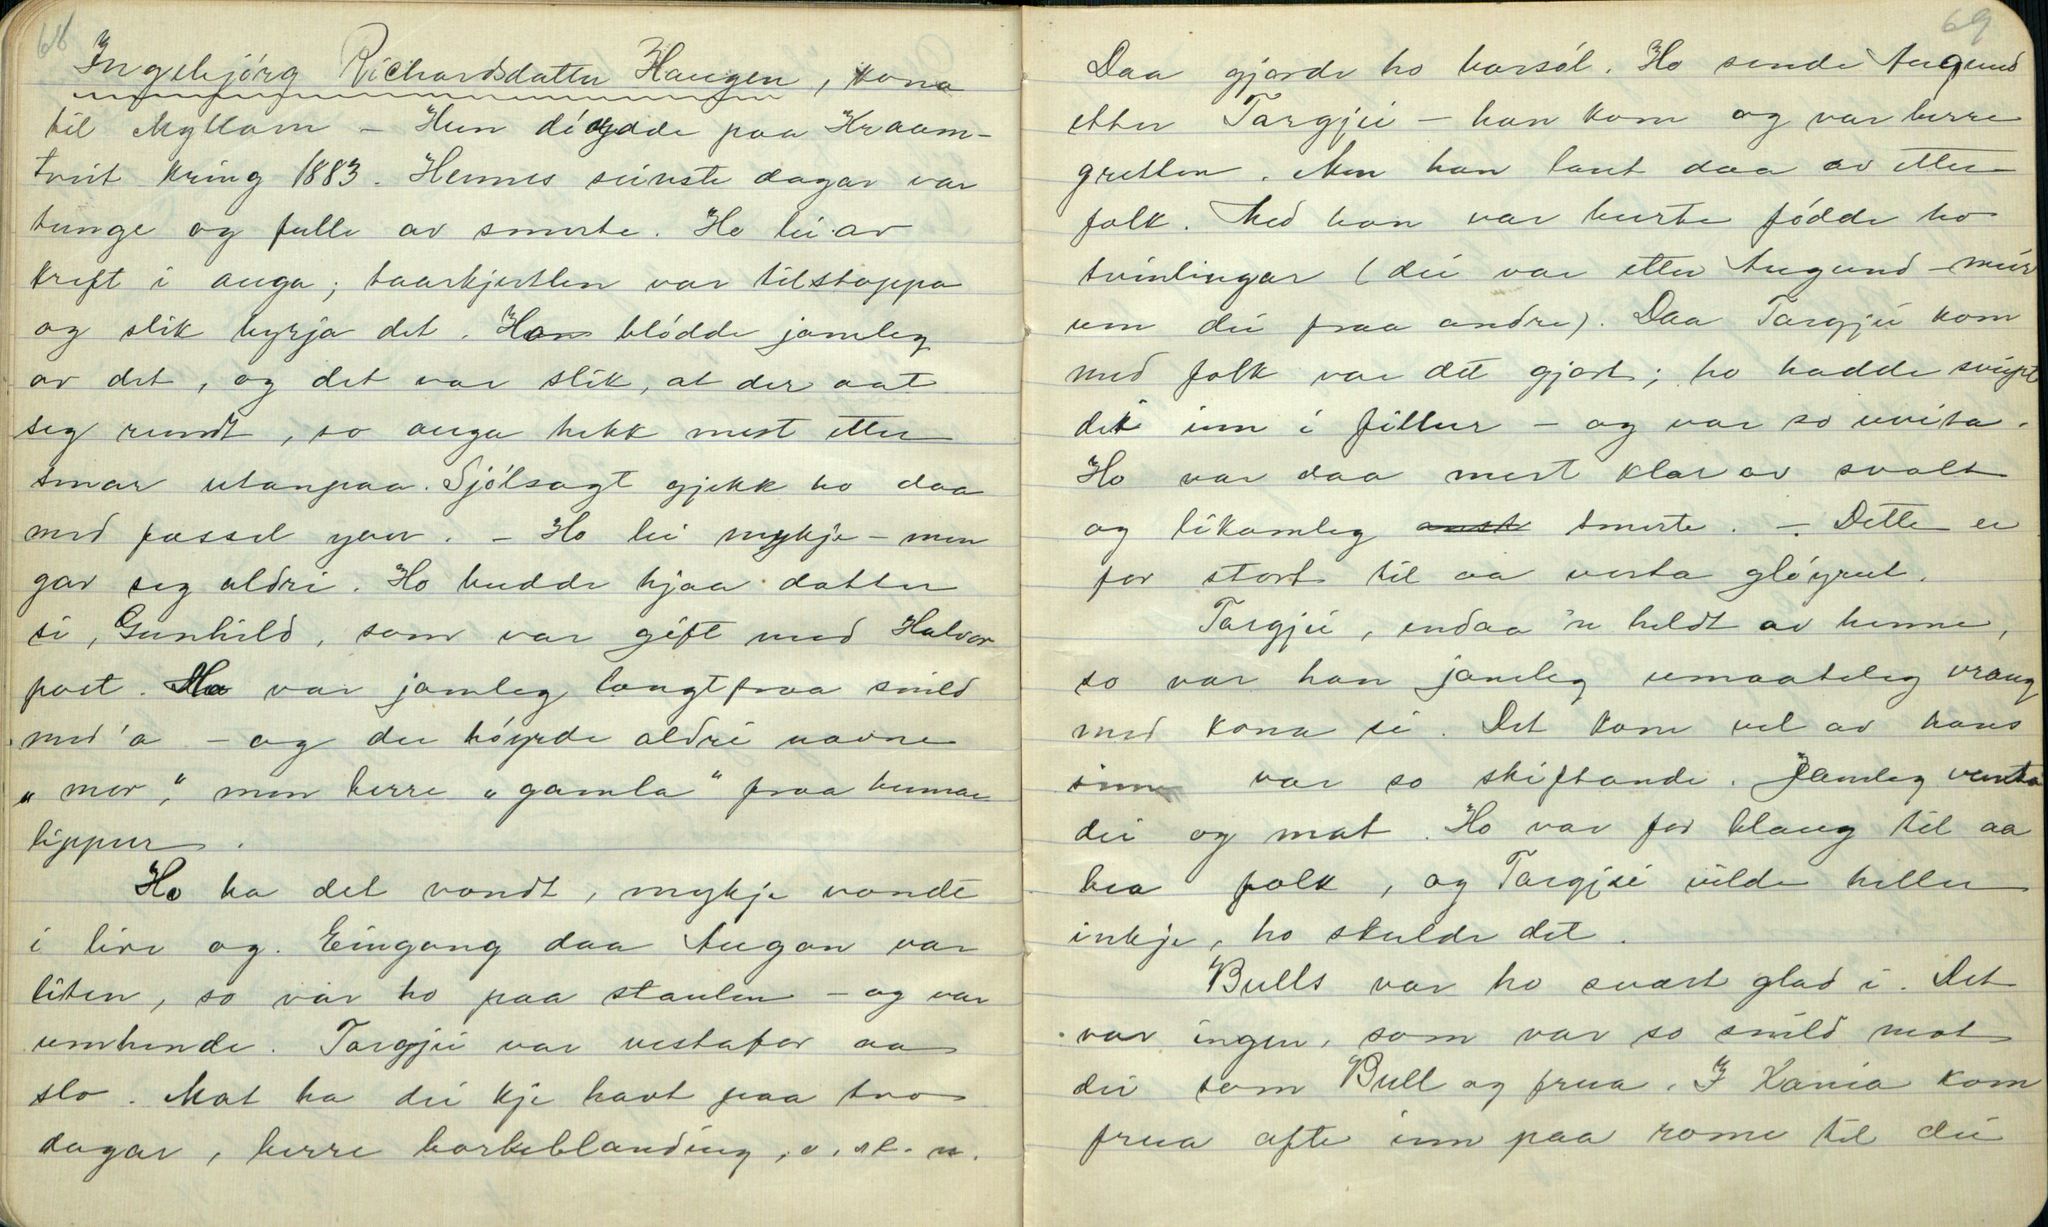 68
Ingebjørg Richardsdatter Haugen, kona
til Myllarn – Hun døydde paa Kraam-
tveit kring 1883. Hennes seinste dagar var
tunge og fulle av smerte. Ho lei av
kreft i auga; taarkjertlen var tilstoppa
og slik byrja det. Han blødde jamleg
av det, og det var slik, at der aat
seg rundt, so auga hekk mest etter
tmar utanpaa. Sjølsagt gjekk ho daa
med fassel yver. – Ho lei mykje – men
gav seg aldri. Ho budde hjaa datter
si, Gunhild, som var gift med Halvor
post. Ho var jamleg langt fraa snild
med 'a – og dei høyrde aldri navne
„mor“, men berre „gamla“ fraa hennar
lippur.
Ho ha det vondt, mykje vondt
i live og. Eingong daa Augon var
liten, so var ho paa staulen – og var
umhende. Targjei var vestafor aa
slo. Mat ha dei kje havt paa tvo
dagar, berre barkeblanding, o. sl. n.
69
Daa gjorde ho barsøl. Ho sende Augund
etter Targjei – han kom og var berre
gretten. Men han laut daa av etter
folk. Med han var burte fødde ho
tvinlingar (dei var etter Augund – meir
um dei fraa andre). Daa Targjei kom
med folk var det gjort; ho hadde sveipt
dei inn i fillur – og var so uvita.
Ho var daa mest klar av svolt
og likamleg smerte. – Dette er
for stort til aa verta gløymt.
Targjei, endaa 'n heldt av henne,
so var han jamleg umaateleg vrang
med kona si. Det kom vel av hans
sinn var so skiftande. Jamleg venta
dei og mat. Ho var for blaug til aa
bea folk, og Targjei vilde heller
inkje, ho skulde det.
Bulls var ho svært glad i. Det
var ingen, som var so snild mot
dei som Bull og frua. I Xania kom
frua ofte inn paa rome til dei